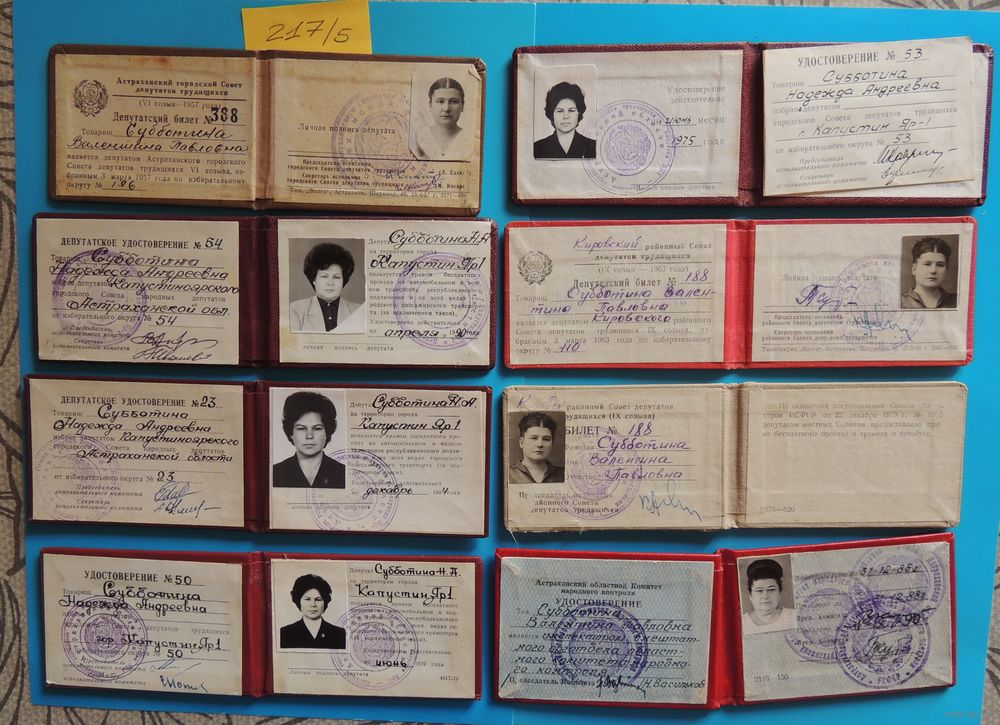 217/5
Астраханский городской Совет
депутатов трудящихся
(VI созыв-1957 года)
Депутатский билет № 388
Товарищ Субботина
Валентина Павловна
является депутатом Астраханского городского
Совета депутатов трудящихся VI созыва, из-
бранным 3 марта 1957 года по избирательному
округу № 196.
Личная подпись депутата
Председатель исполкома
городского Совета депутатов трудящихся
Секретарь исполкома
городского Совета депутатов трудящихся
Удостоверение
действительно
июнь месяц
1975 года
УДОСТОВЕРЕНИЕ № 53
Товарищ Субботина
Надежда Андреевна
избран депутатом
депутатов трудящихся
г. Капустин Яр-1
от избирательного округа № 53
Председатель
исполнительного комитета
Секретарь
исполнительного комитета
ДЕПУТАТСКОЕ УДОСТОВЕРЕНИЕ № 54
Товарищ Субботина
Надежда Андреевна
избран депутатом Капустиноярского
городского Совета народных депутатов
Астраханской обл.
от избирательного округа № 54
Председатель
исполнительного комитета
Секретарь
исполнительного комитета
Депутат Субботина Н.А
на территории города
Капустин Яр1
пользуется правом бесплатного
проезда на автомобильном и вод-
ном транспорте республиканского
подчинения и на всех видах
городского пассажирского транспорта
(за исключением такси).
Удостоверение действительно
апреля 1990
личная подпись депутата
Кировский районный Совет
депутатов трудящихся
(IX созыв - 1963 года)
Депутатский билет № 188
Товарищ Субботина Вален-
тина Павловна
является депутатом Кировского районного
Совета депутатов трудящихся IX созыва, из-
бранным 3 марта 1963 года по избирательному
округу № 110
Личная подпись депутата
Председатель исполкома
районного Совета депутатов трудящихся
Секретарь исполкома
районного Совета депутатов трудящихся
ДЕПУТАТСКОЕ УДОСТОВЕРЕНИЕ № 23
Товарищ Субботина
Надежда Андреевна
избран депутатом Капустиноярского
городского Совета народных депутатов
Астраханской области
от избирательного округа № 23
Председатель
исполнительного комитета
Секретарь
исполнительного комитета
Депутат Субботина Н.А.
на территории города
Капустин Яр 1
пользуется правом бесплатного проез-
да на автомобильном и водном
транспорте республиканского подчи-
нения и на всех видах городского
пассажирского транспорта (за исклю-
чением такси).
Удостоверение действительно
декабрь
личная подпись депутата
районный Совет депутатов
трудящихся (IX созыва)
БИЛЕТ № 188
Фамилия Субботина
Валентина
Отчество Павловна
Председатель исполкома
районного Совета
депутатов трудящихся
На основании постановления Совета Мини-
стров РСФСР от 22 декабря 1959 г.
депутатам местных Советов предоставлено пра-
во бесплатного проезда в трамвае и автобусе.
2076—620
УДОСТОВЕРЕНИЕ № 50
Товарищ Субботина
Надежда Андреевна
депутатов трудящихся
гор. Капустин Яр1
50
Председатель
исполнительного комитета
Секретарь
исполнительного комитета
Депутат Субботина Н.А.
на территории города
Капустин Яр1
июнь 1979 года
Личная подпись депутата
Астраханский областной Комитет
народного контроля
УДОСТОВЕРЕНИЕ
Тов. Субботина
Валентина Павловна
является инспектором внештат-
ного орготдела област-
ного комитета народно-
го контроля
Председатель Комитета Н. Васильков
31-12-85г
2183—150